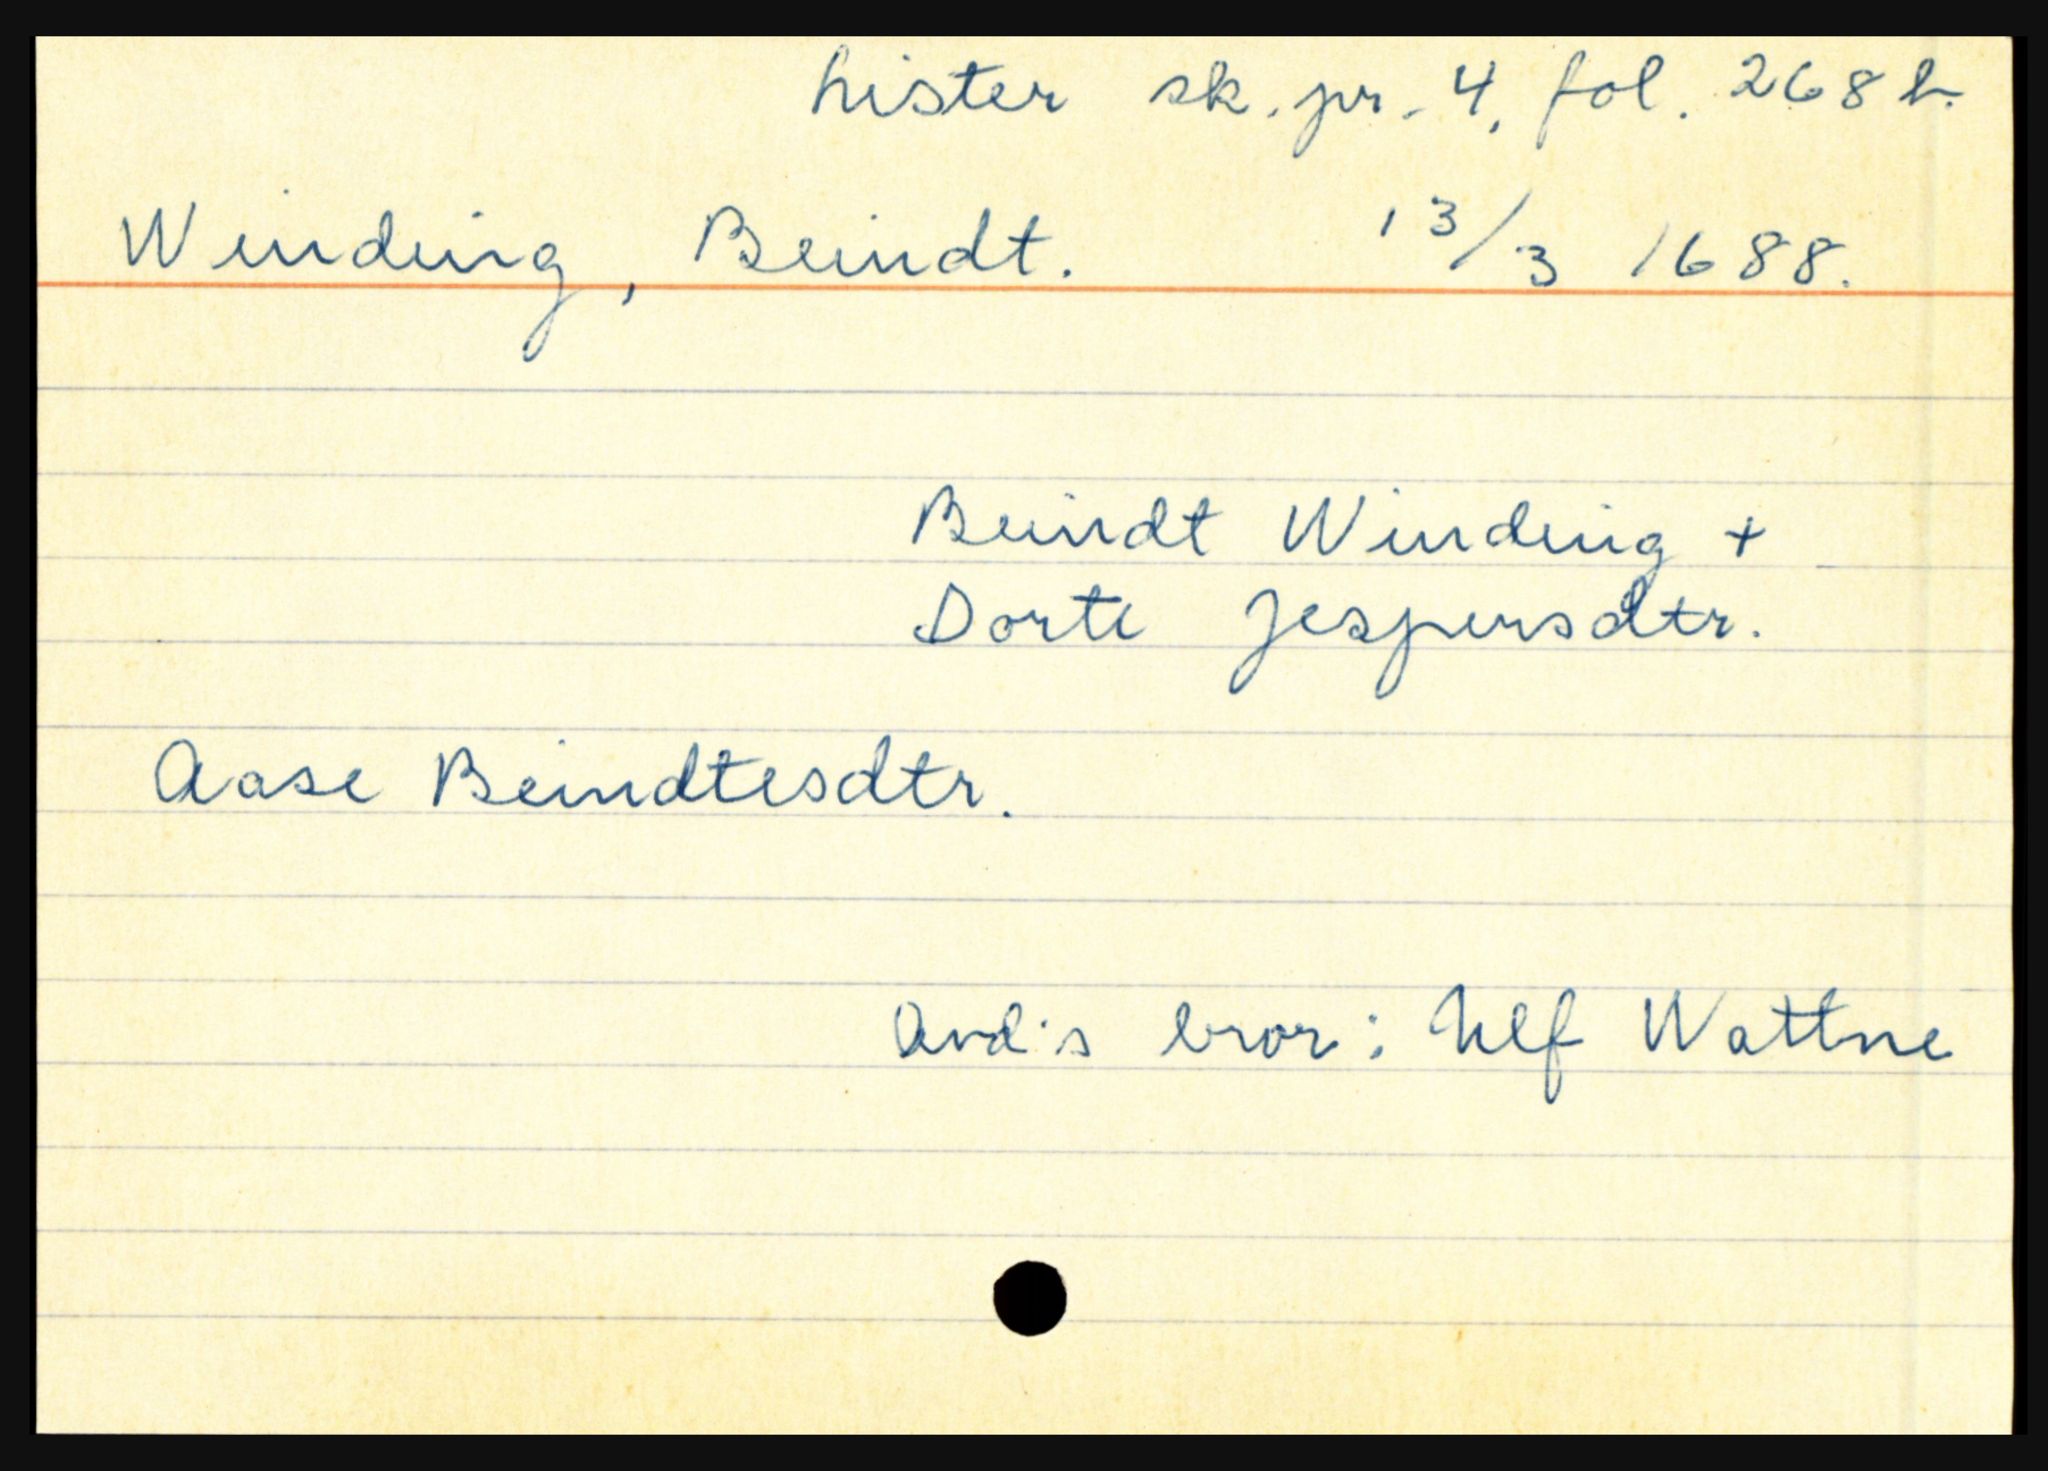 Lister sk. pr. 4, fol. 268 b.
Winding, Beindt. 13/3 1688.
Beindt Winding +
Dorte Jespersdtr.
Aase Beindtesdtr.
Avd's bror: Ulf Wattne